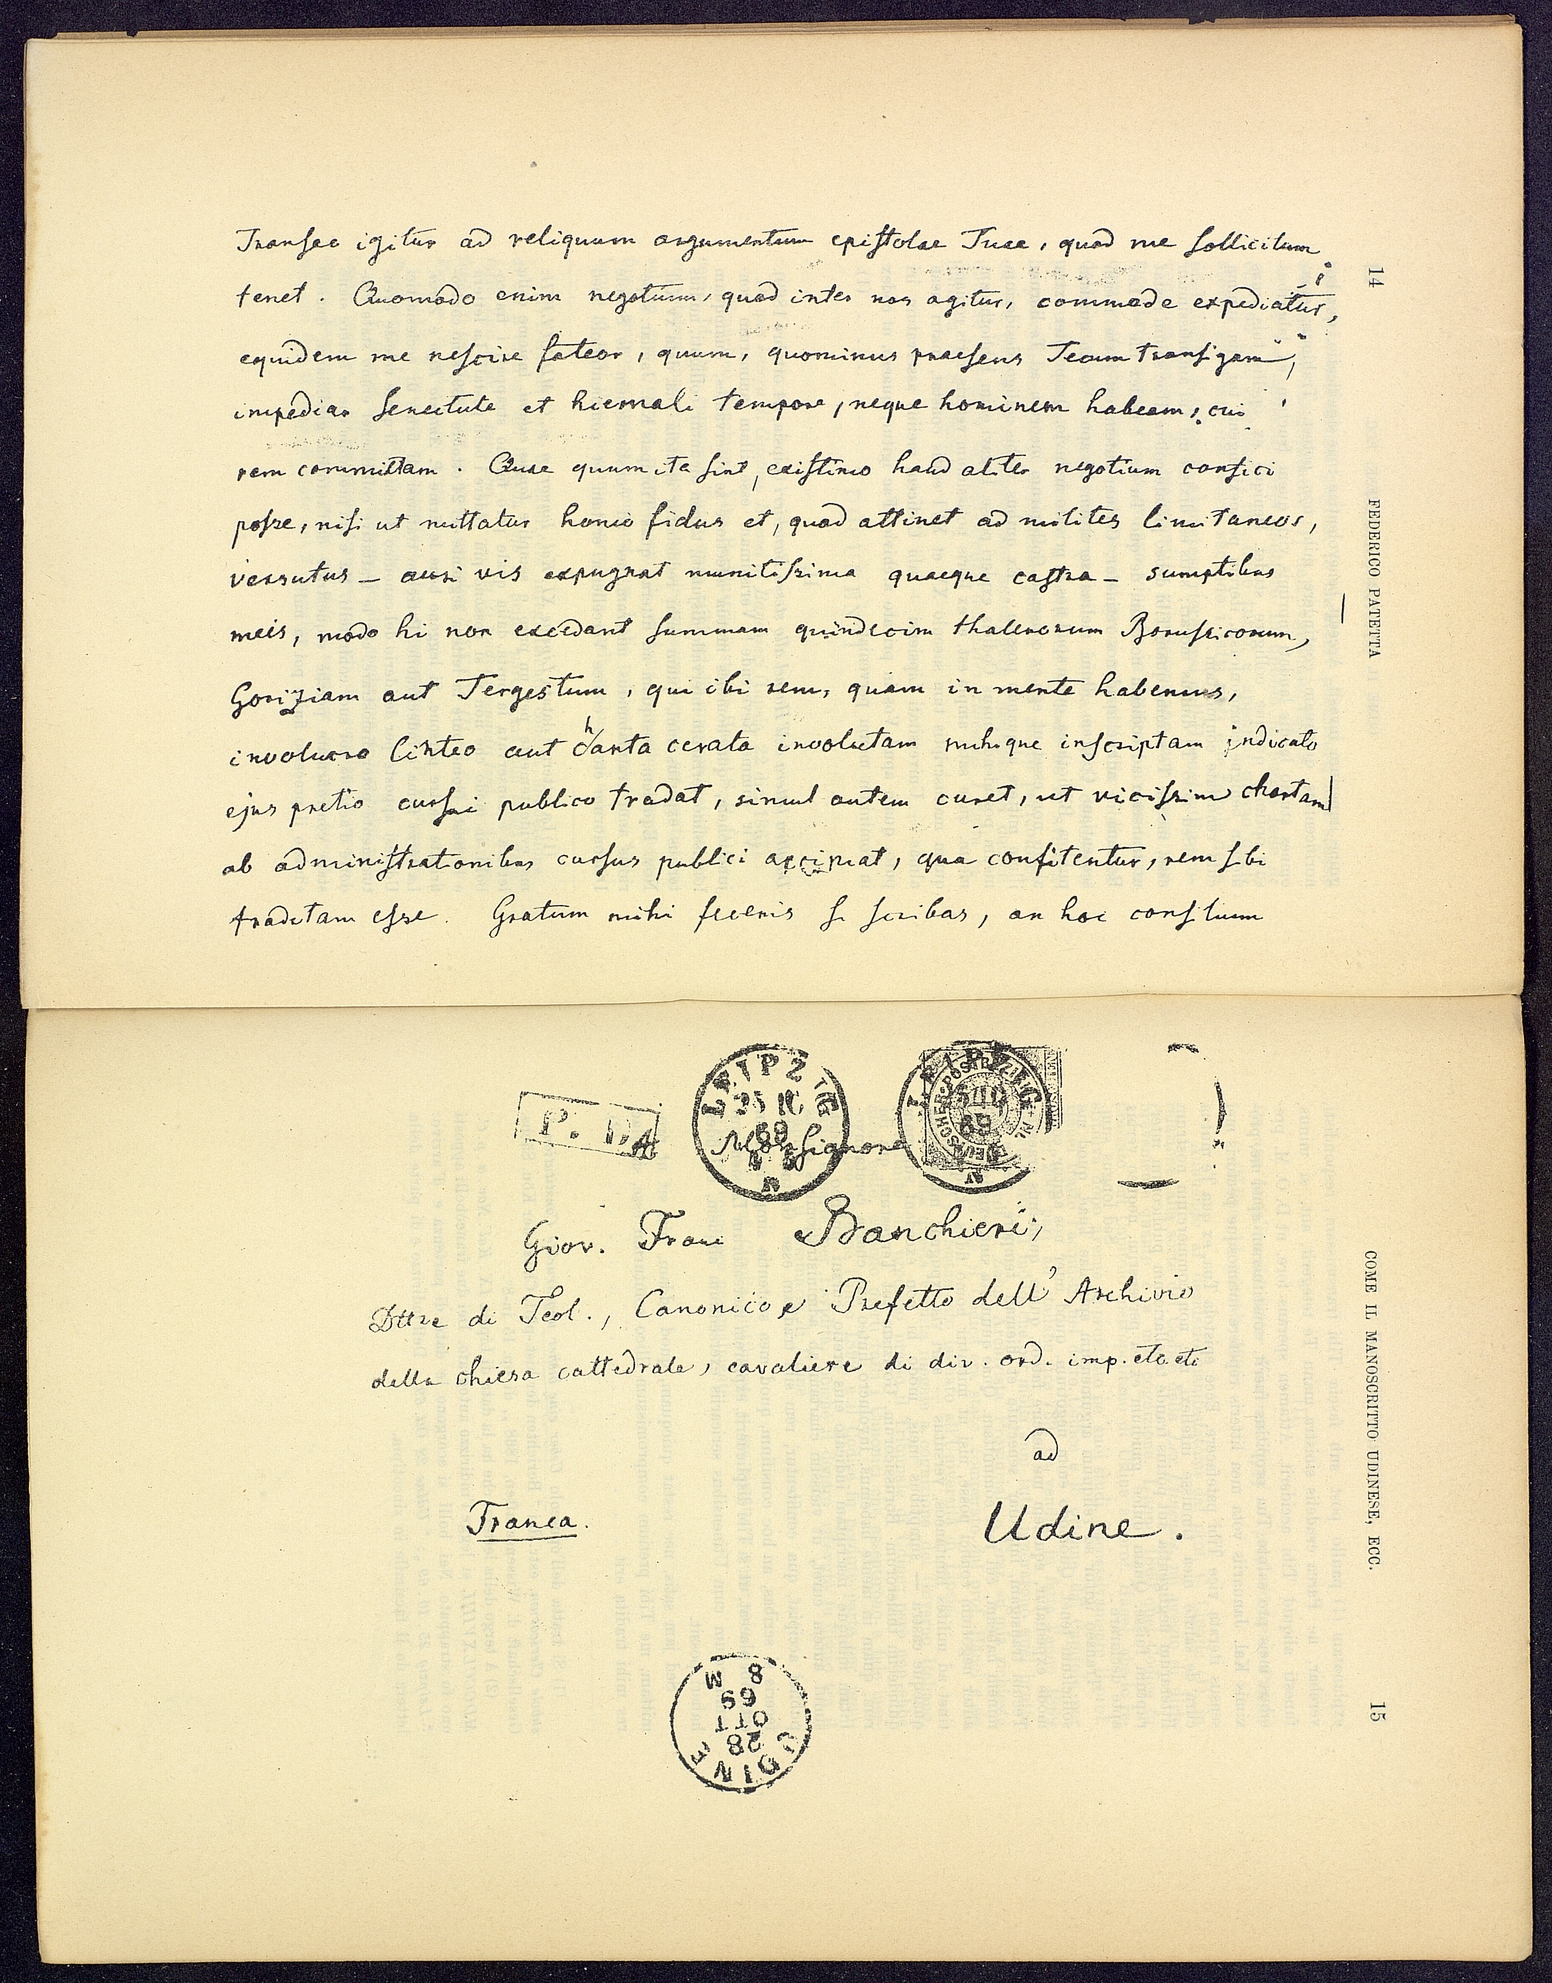 14
FEDERICO PATETTA
Transeo igitur ad reliquum argumentum epistolae Tuae, quod me sollicitum
tenet. Quomodo enim negotium, quod inter nos agitur, commode expediatur,
equidem me nescire fateor, quum, quominus praesens Tecum transigam,
impediar senectute et hiemali tempore, neque hominem habeam, cui
rem committam. Quae quum ita sint, existimo haud aliter negotium confici
posse, nisi ut mittatur homo fidus et, quod attinet ad milites limitaneos,
versutus – auri vis expugnat munitissima quaeque castra – sumptibus
meis, modo hi non excedant summam quindecim thalerorum Borussicorum,
Goriziam aut Tergestum, qui ibi rem, quam in mente habemus,
involucro linteo aut charta cerata involutam mihique inscriptam indicato
ejus pretio cursui publico tradat, simul autem curet, ut vicissim chartam
ab administrationibus cursus publici accipiat, qua confitentur, rem sibi
traditam esse. Gratum mihi feceris si scribas, an hoc consilium
P. D.
LEIPZIG
69
LEIPZIG
69
Monsignore
Giov. Franc Banchieri,
Dttre di Teol., Canonico e Prefetto dell' Archivio
della chiesa cattedrale, cavaliere di div. ord. imp. etc etc
ad
Franca.
Udine.
UDINE
28
OTT
69
8 M
COME IL MANOSCRITTO UDINESE, ECC.
15